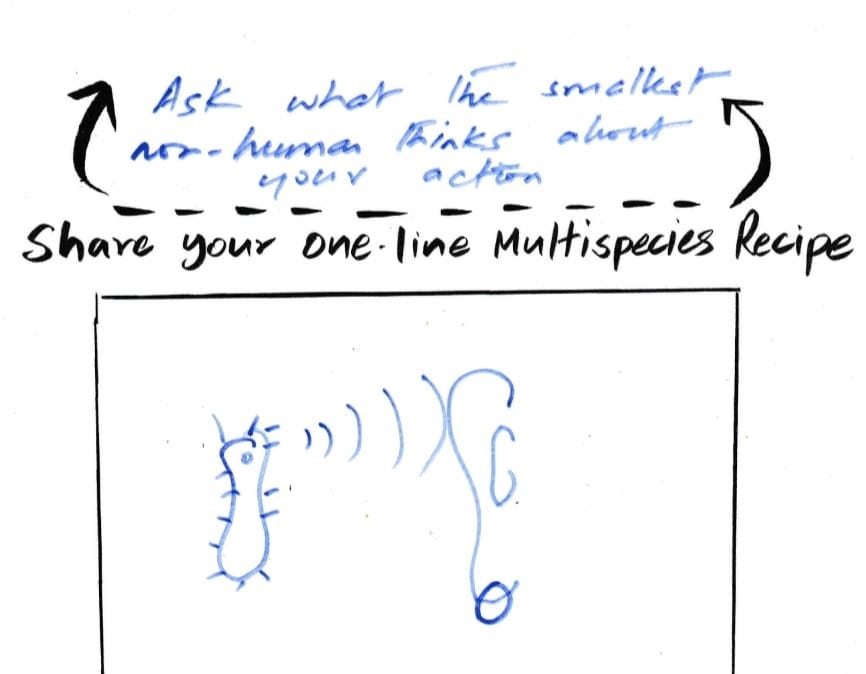 Ask what the smallest
non-human thinks about
your action
Share your one-line Multispecies Recipe